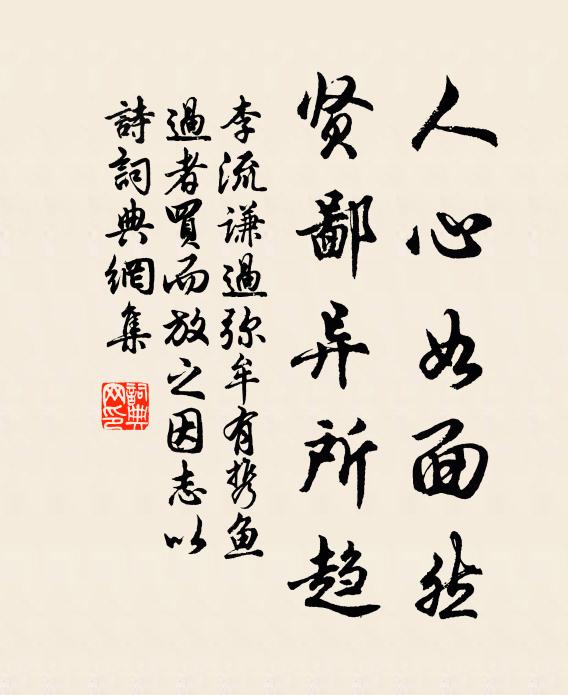 人心如面然
贤鄙异所趋
李流谦過弥牟有携鱼
過者買而放之因志以
詩詞典網集
詞典網印